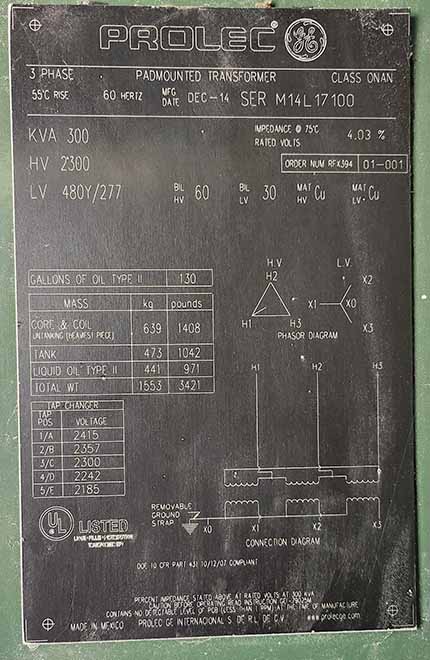 PROLEC GE
3 PHASE PADMOUNTED TRANSFORMER CLASS ONAN
55°C RISE 60 HERTZ MFG DATE DEC-14 SER M14L17100
KVA 300 IMPEDANCE @ 75°C RATED VOLTS 4.03 %
HV 2300 ORDER NUM RFX394 01-001
LV 480Y/277 BIL HV 60 BIL LV 30 MAT HV Cu MAT LV Cu
GALLONS OF OIL TYPE II 130
H.V L.V.
H2 X2
X1 X0
H1 H3 X3
PHASOR DIAGRAM
MASS kg pounds
CORE & COIL UNTANKING (HEAVIEST PIECE) 639 1408
TANK 473 1042
LIQUID OIL TYPE II 441 971
TOTAL WT 1553 3421
H1 H2 H3
TAP CHANGER
TAP POS VOLTAGE
1/A 2415
2/B 2357
3/C 2300
4/D 2242
5/E 2185
REMOVABLE GROUND STRAP
X0 X1 X2 X3
CONNECTION DIAGRAM
UL LISTED
DOE 10 CFR PART 431 10/12/07 COMPLIANT
PERCENT IMPEDANCE STATED ABOVE AT RATED VOLTS AT 300 KVA
CAUTION BEFORE OPERATING READ INSTRUCTION
CONTAINS NO DETECTABLE LEVEL OF PCB (LESS THAN 1 PPM) AT THE TIME OF MANUFACTURE
MADE IN MEXICO PROLEC GE INTERNACIONAL S. DE R.L. DE C.V. www.prolecge.com